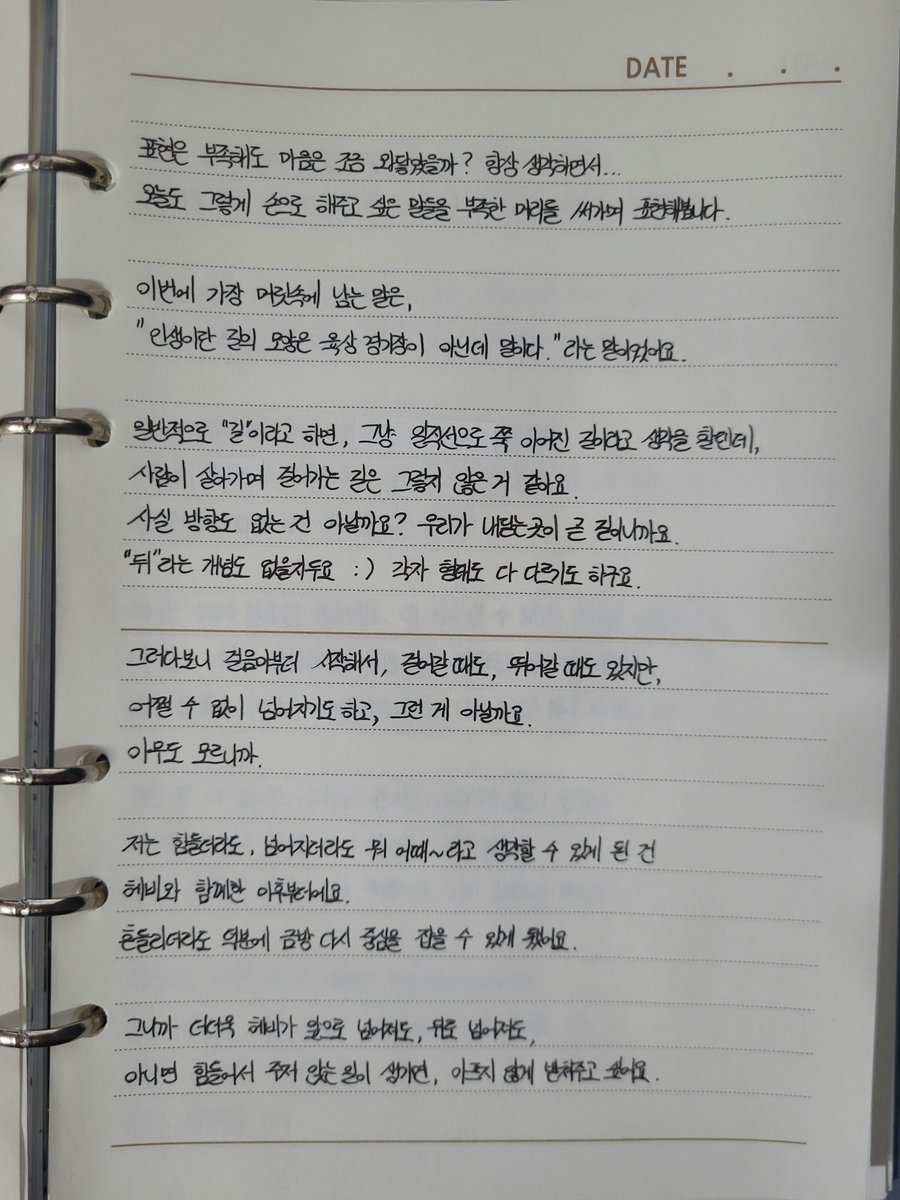 DATE . . .
표현은 부족해도 마음은 조금 와닿았을까? 항상 생각하면서...
오늘도 그렇게 손으로 해주고 싶은 말들을 부족한 머리를 써가며 표현해봅니다.
이번에 가장 머릿속에 남는 말은,
"인생이란 길의 모양은 육상 경기장이 아닌데 말이다."라는 말이었어요.
일반적으로 "길"이라고 하면, 그냥 일직선으로 쭉 이어진 길이라고 생각을 할텐데,
사람이 살아가며 걸어가는 길은 그렇지 않은 거 같아요.
사실 방향도 없는 건 아닐까요? 우리가 내딛는곳이 곧 길이니까요.
"뒤"라는 개념도 없을지두요 :) 각자 형태도 다 다르기도 하구요.
그러다보니 걸음마부터 시작해서, 걸어갈 때도, 뛰어갈 때도 있지만,
어쩔 수 없이 넘어지기도 하고, 그런 게 아닐까요.
아무도 모르니까.
저는 힘들더라도, 넘어지더라도 뭐 어때~라고 생각할 수 있게 된 건
헤비와 함께한 이후부터에요.
흔들리더라도 덕분에 금방 다시 중심을 잡을 수 있게 됐어요.
그니까 더더욱 헤비가 앞으로 넘어져도, 뒤로 넘어져도,
아니면 힘들어서 주저 앉는 일이 생기면, 아프지 않게 받쳐주고 싶어요.